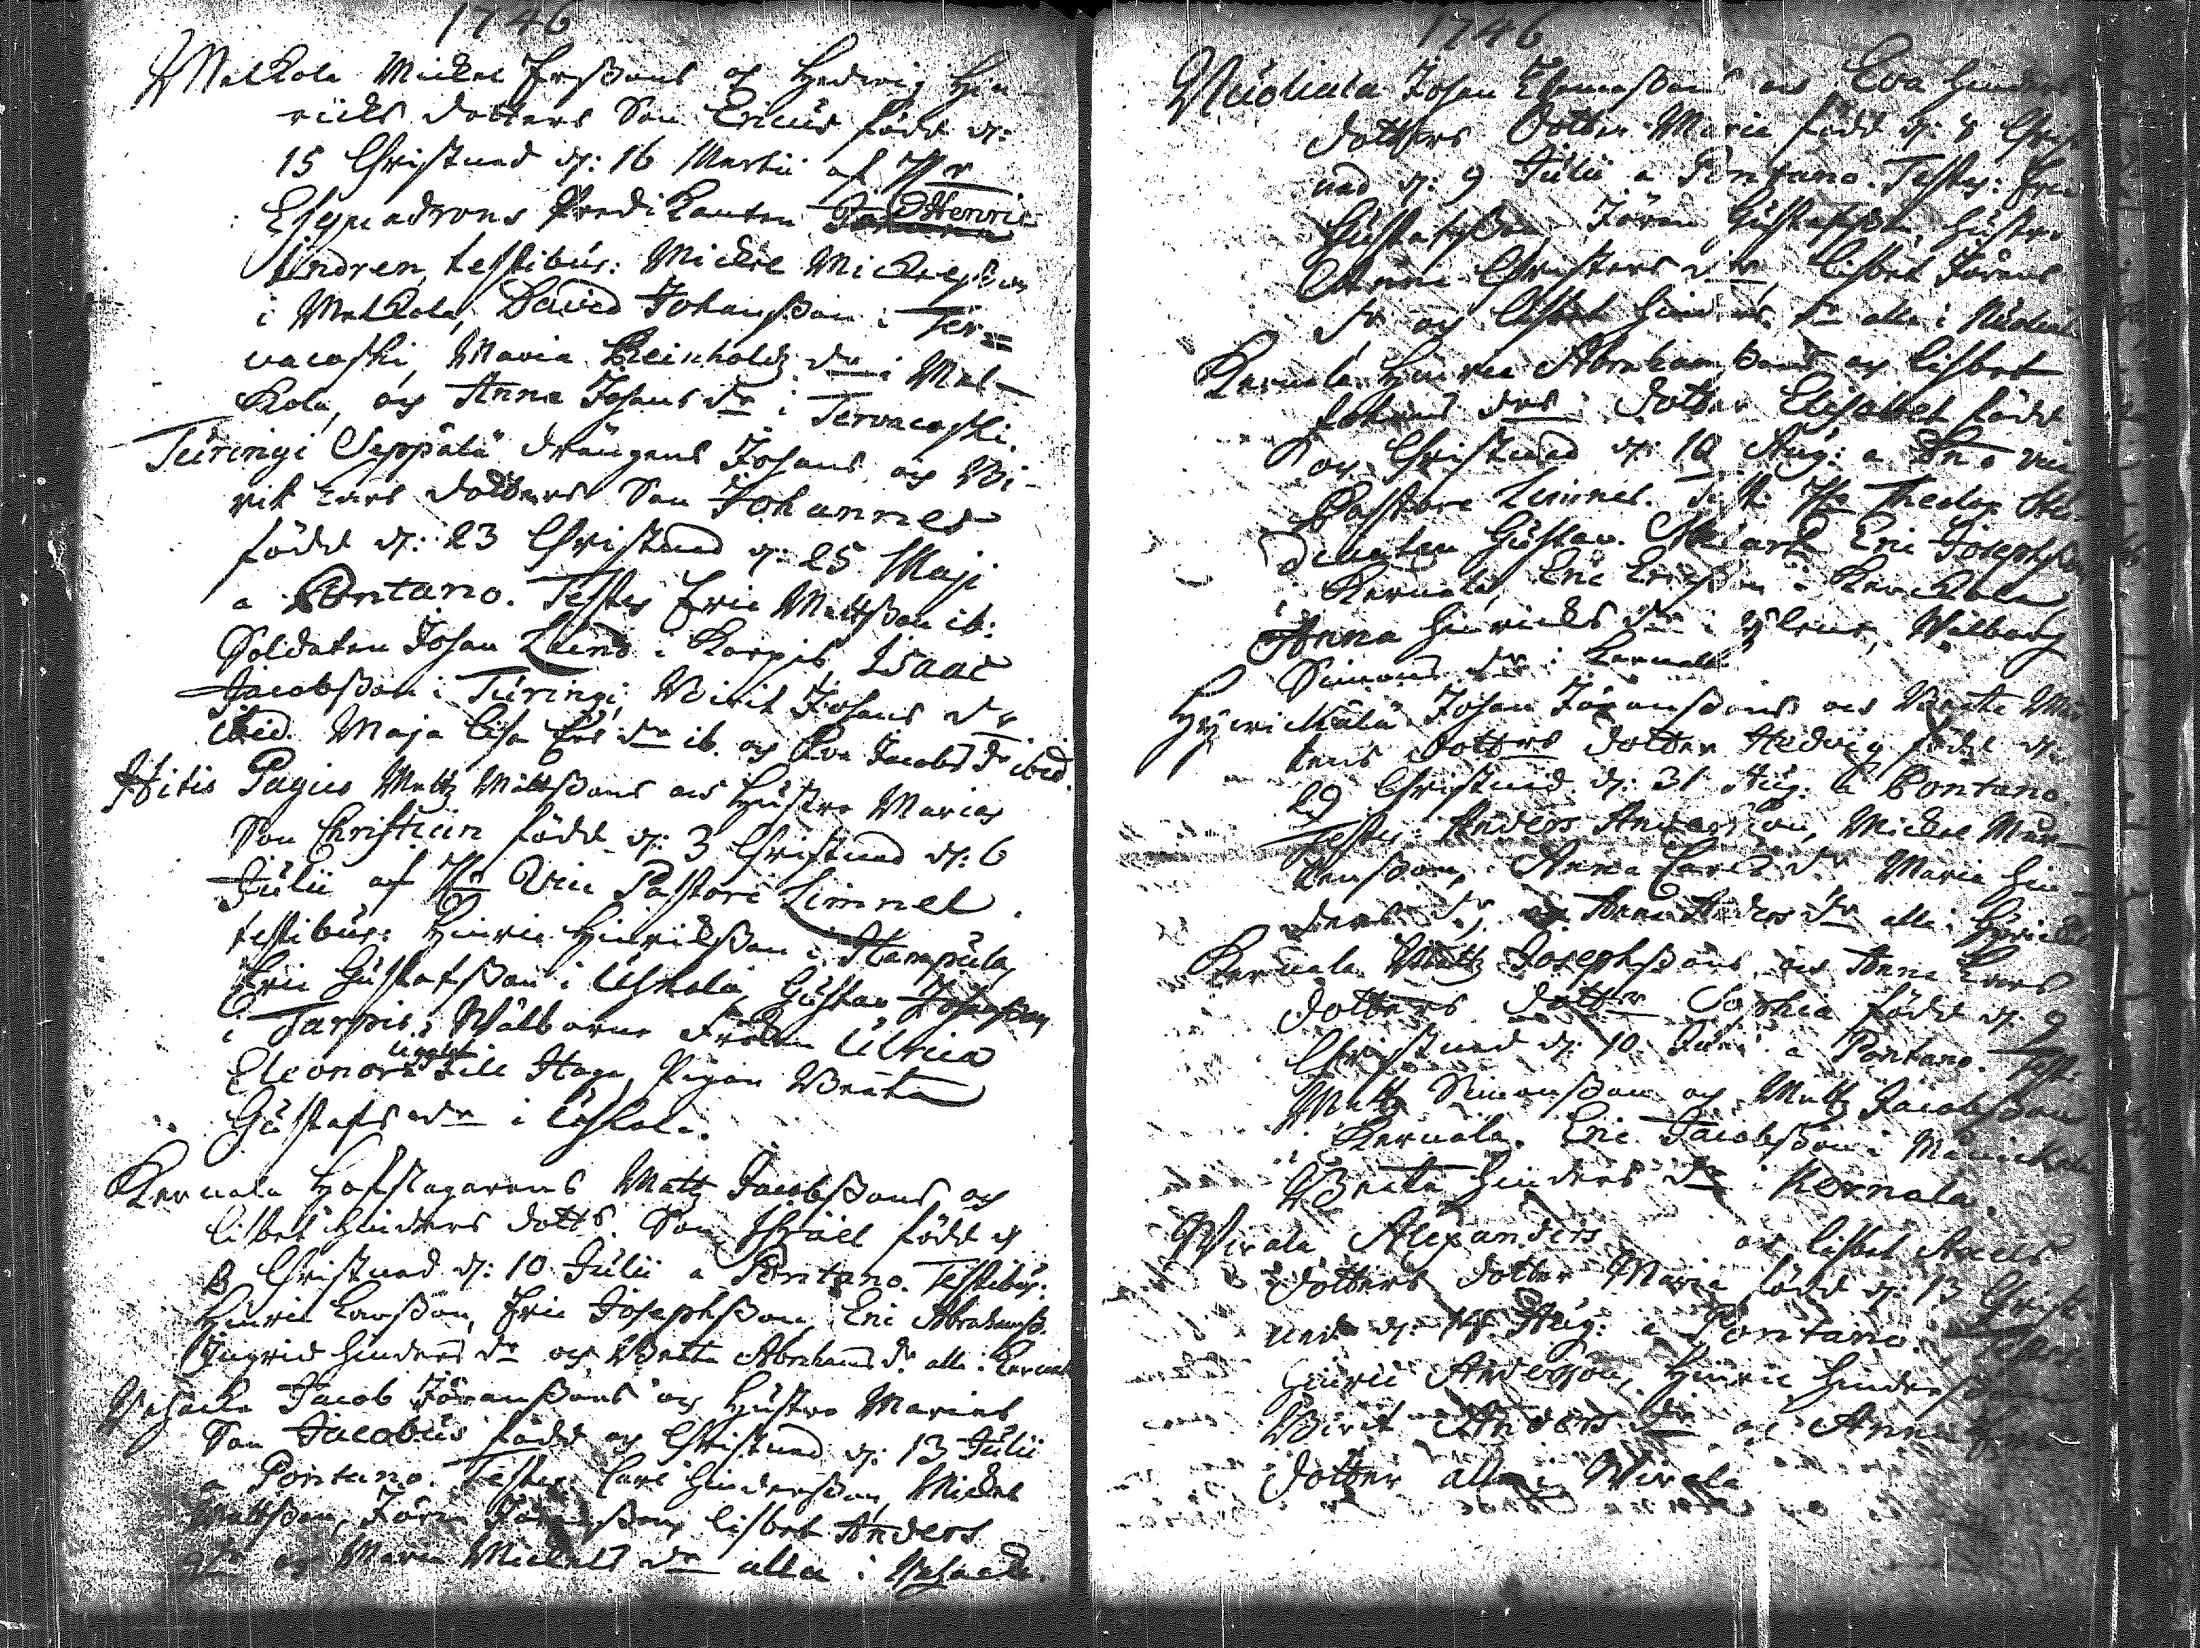 1746
Melkola Mickel Ersßons och Hedwig Hin-
richs dotters Son Ericus född d:
15 Christnad d: 16 Martii af Hr
Esquadrons Predikanten Henric
Lindren, testibus: Mickel Mickelsson
i Melkola, David Johansßon i Ter=
vacoski, Maria Reinholdz dr i Mel-
kola, och Anna Johans dr i Tervacoski.
Turingi Seppälä Drängens Johans och Bi-
rit Lars dotters Son Johannes
född d: 23 Christnad d: 25 Maji
a Pontano. Testes Eric Mattsßon ib:
Soldaten Johan Lund i Karpis Isaac
Jacobsßon i Turingi, Birit Johans dr
ibid. Maja Lisa Ers dr ib. och Eva Jacobs dr ibid.
Hitis Pagius Mattz Mattsßons och Hustro Marias
Son Christian född d: 3 Christnad d: 6
Julii af Hr Vice Pastore Limnel
testibus: Hinric Hinricsßon i Hampula,
Eric Gustafsßon i Uhkola, Gustav Johansßon
i Tarpis, Wälborne Fröken Ulrica
Eleonora Uggla till Haga, Pigan Beata
Gustafs dr i Uhkola.
Kernala Hofslagarens Mattz Jacobsßons och
Lisbet Hinders dotts. Son Isräel född d
8 Christnad d: 10 Julii a Pontano. Testibus:
Hinric Larsßon, Eric Josephsßon, Eric Abrahamsß.
Ingrid Hinders dr och Beata Abrahams dr alla i Kernala
Wehacke Jacob Jöransßons och Hustro Marias
Son Jacobus född och Christnad d: 13 Julii
a Pontano. Testes Carl Hindersßon, Mickel
Mattsßon, Jöran Jöransßon, Lisbet Anders
dr och Maria Mickels dr alla i Wehacke.
1746
Nuoliala Johan Thomasßons och Eva Hinders
dotters Dotter Maria född d: 8 Christ
nad d: 9 Julii a Pontano. Testes: Eric
Gustafsßon, Jöran Gustafsßon, Hustro
Anna Christers dr, Lisbet Jörans
dr och Lisbet Hinders dr alla i Nuoliala
Kernala Hinric Abrahamsßons och Lisbet
Johans drs Dotter Elisabet född
och Christnad d: 10 Aug: a Dno vice
Pastore Limnel. Test: Hr Theolog. Stu-
denten Gustav. Eric Josephsßon
i Kernala, Eric Ericsßon i
Anna Hinrichs dr i Ylene, Walborg
Simons dr i Kernala
Hywickälä Johan Jöransßons och Beata Mår
tens dotters dotter Hedvig född d:
29 Christnad d: 31 Aug: a Pontano.
Testes: Anders Andersßon, Mickel Mår-
tensßon, Anna Carls dr Maria Hin-
ders dr, och Anna Anders dr alla i Hywickälä
Kernala Mattz Josephsßons och Anna Lars
dotters dotter Sophia född d: 9
Christnad d: 10 a Pontano. Test:
Mattz Simonsßon och Mattz Jacobsßon
i Kernala. Eric Jacobsßon i
Beata Hinders dr i Kernala.
Wirala Alexanders och Lisbet
dotters dotter Maria född d: 13 Christ
nad d: 14 Aug: a Pontano. Testes
Hinric Andersßon, Hinric Hindersß
Birit Anders dr och Anna
dotter alla i Wirala